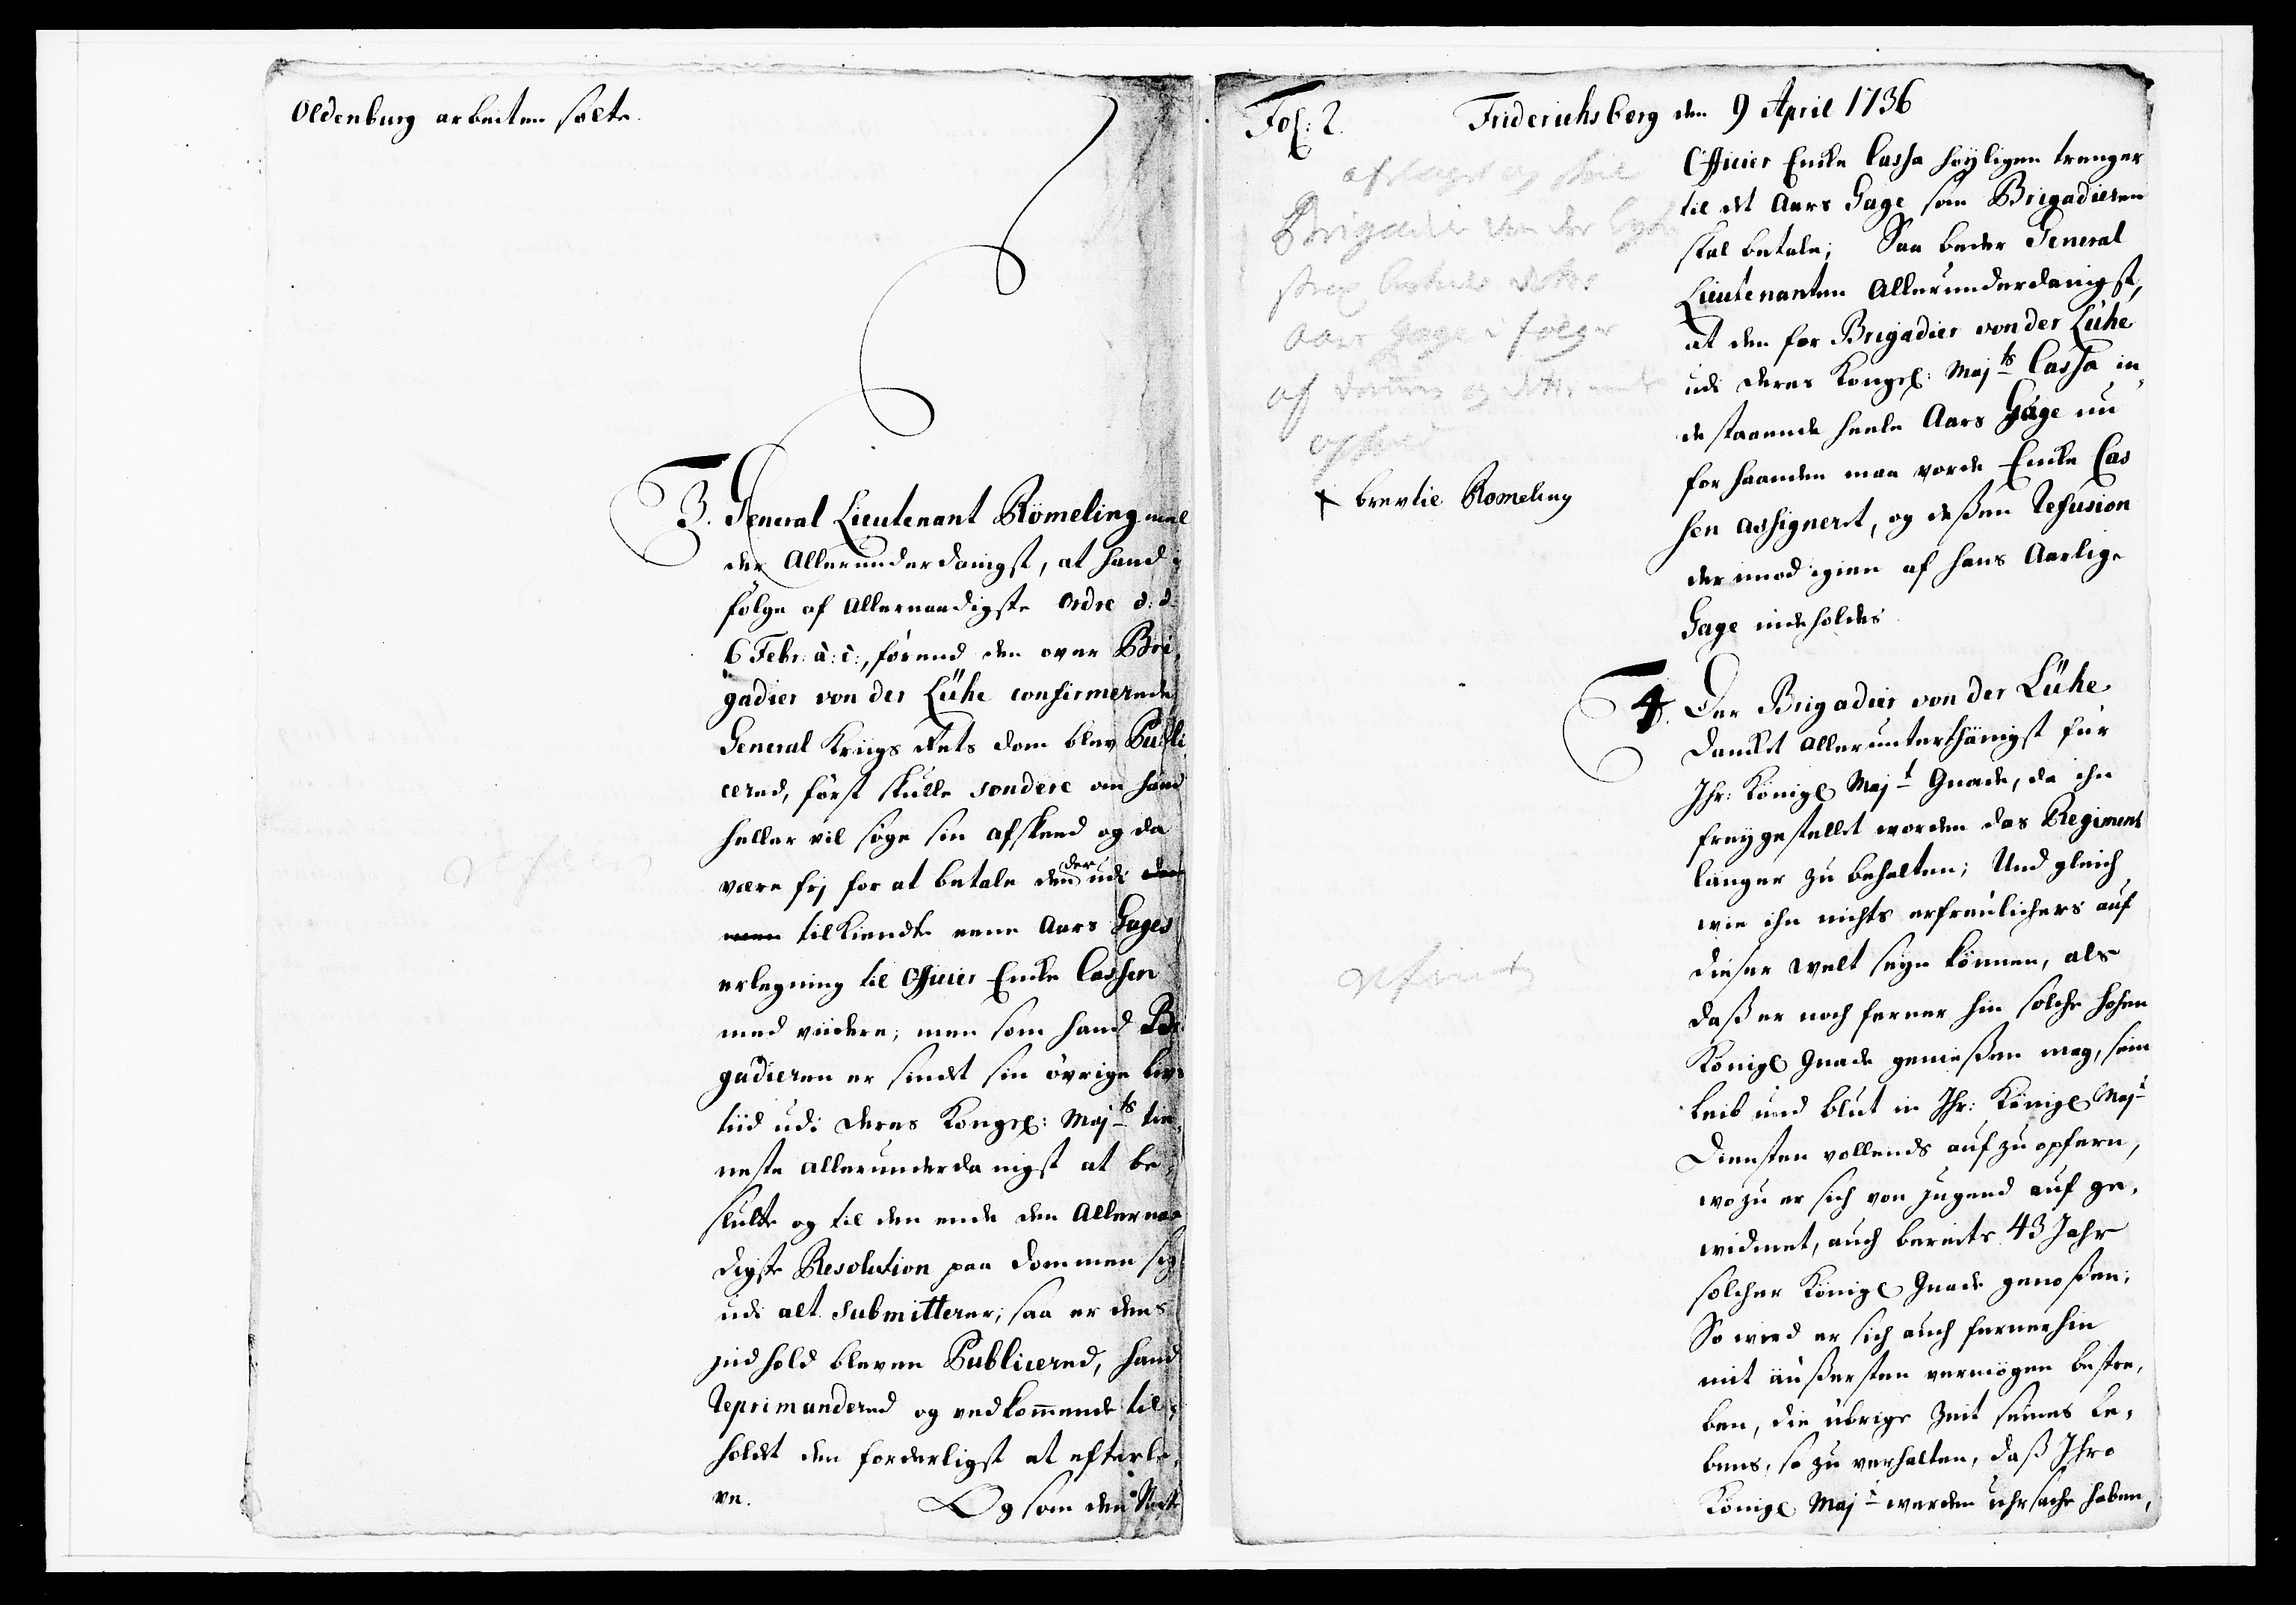 Oldenburg arbeiten solte.
3. General Lieutenant Römeling mel
der Allerunderdanigst, at hand i
følge af Allernaadigste Ordre d: d:
6 Febr. a: c:, førend den over Bri,
gadier von der Lühe confirmerede
General Kriigs Rets dom blev Publi
cered, først skulle sondere om hand
heller vil søge sin afskeed og da
være frj for at betale den der udi den
men tilkiendte eene Aars Gages
erlegning til Officier Enke Cassen
med viidere; men som hand Bri
gadieren er sindet sin övrige livs
tiid udi Deres Kongel: Maj:ts tie,
neste allerunderdanigst at be,
slutte og til den ende den Allernaa
digste Resolution paa dommen sig
udi alt submitterer; saa er dens
Indhold bleven Publicered, hand
Reprimandered og vedkommende til,
holdt den forderligst at efterle,
ve. Og som den
Fol: 2. Friderichsberg den 9 April 1736
Brigadier von der
Aars Gage i følge
af
× brevlie Romeling
Officier Enke Cassa høyligen trenger
til det Aars Gage som Brigadieren
skal betale; Saa beder General
Lieutenanten Allerunderdanigst,
at den for Brigadier von der Lühe
udi Deres Kongel: Maj:ts Cassa in,
destaaende heele Aars Gage nu
forhaanden maa vorde Enke Cas
sen assigneret, og deßen Refusion
derimod igien af hans Aarlige
Gage indeholdes
4. Der Brigadier von der Lühe
dancket allerunterthänigst für
Ihr: Königl Maj:t Gnade, da ihn
freygestellet worden das Regiment
länger zu behalten; Und gleich
wie ihn nichts erfreulichers auf
dieser welt seyn können, als
daß er noch ferner hin solche hohen
Königl Gnade genießen mag, sein
Leib und blut in Ihr: Königl Maj:t
Diensten vollends aufzuopfern,
wozu er sich von Jugend auf ge,
widmet, auch bereits 43 Jahr
solcher Königl Gnade genoßen;
So wird er sich auch fernerhin
mit äußersten vermögen bestre,
ben, die übrige Zeit seines Le,
bens, so zu verhalten, daß Ihro
Königl Maj:t werden uhrsache haben,